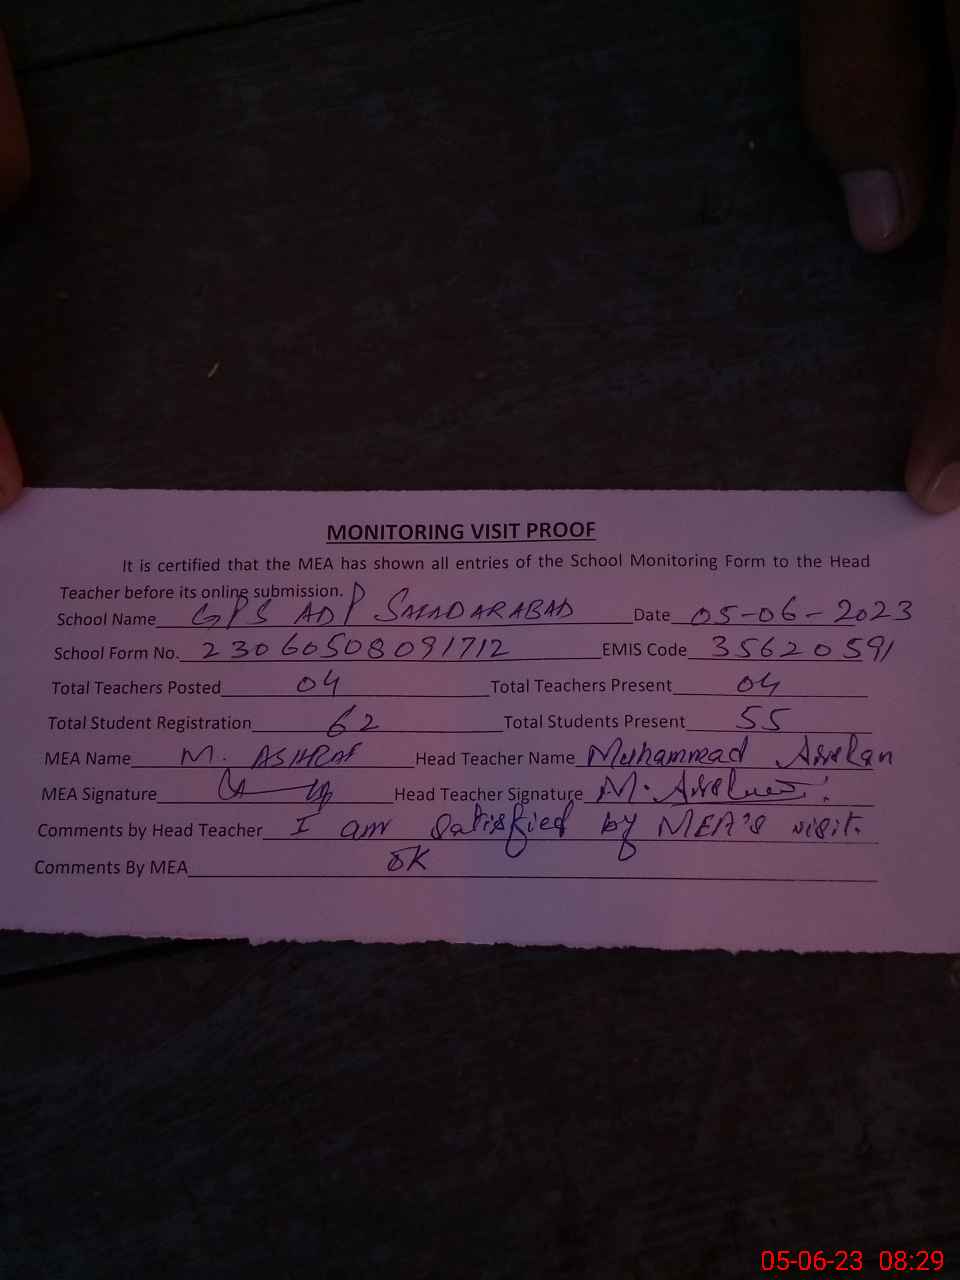 MONITORING VISIT PROOF
It is certified that the MEA has shown all entries of the School Monitoring Form to the Head
Teacher before its online submission.
School Name GPS ADP Date 05-06-2023
School Form No. 23060508091712 EMIS Code 35620591
Total Teachers Posted 04 Total Teachers Present 04
Total Student Registration 62 Total Students Present 55
MEA Name M. ASHRAF Head Teacher Name Muhammad
MEA Signature Head Teacher Signature M.
Comments by Head Teacher I am satisfied by MEA's visit.
Comments By MEA OK
05-06-23 08:29